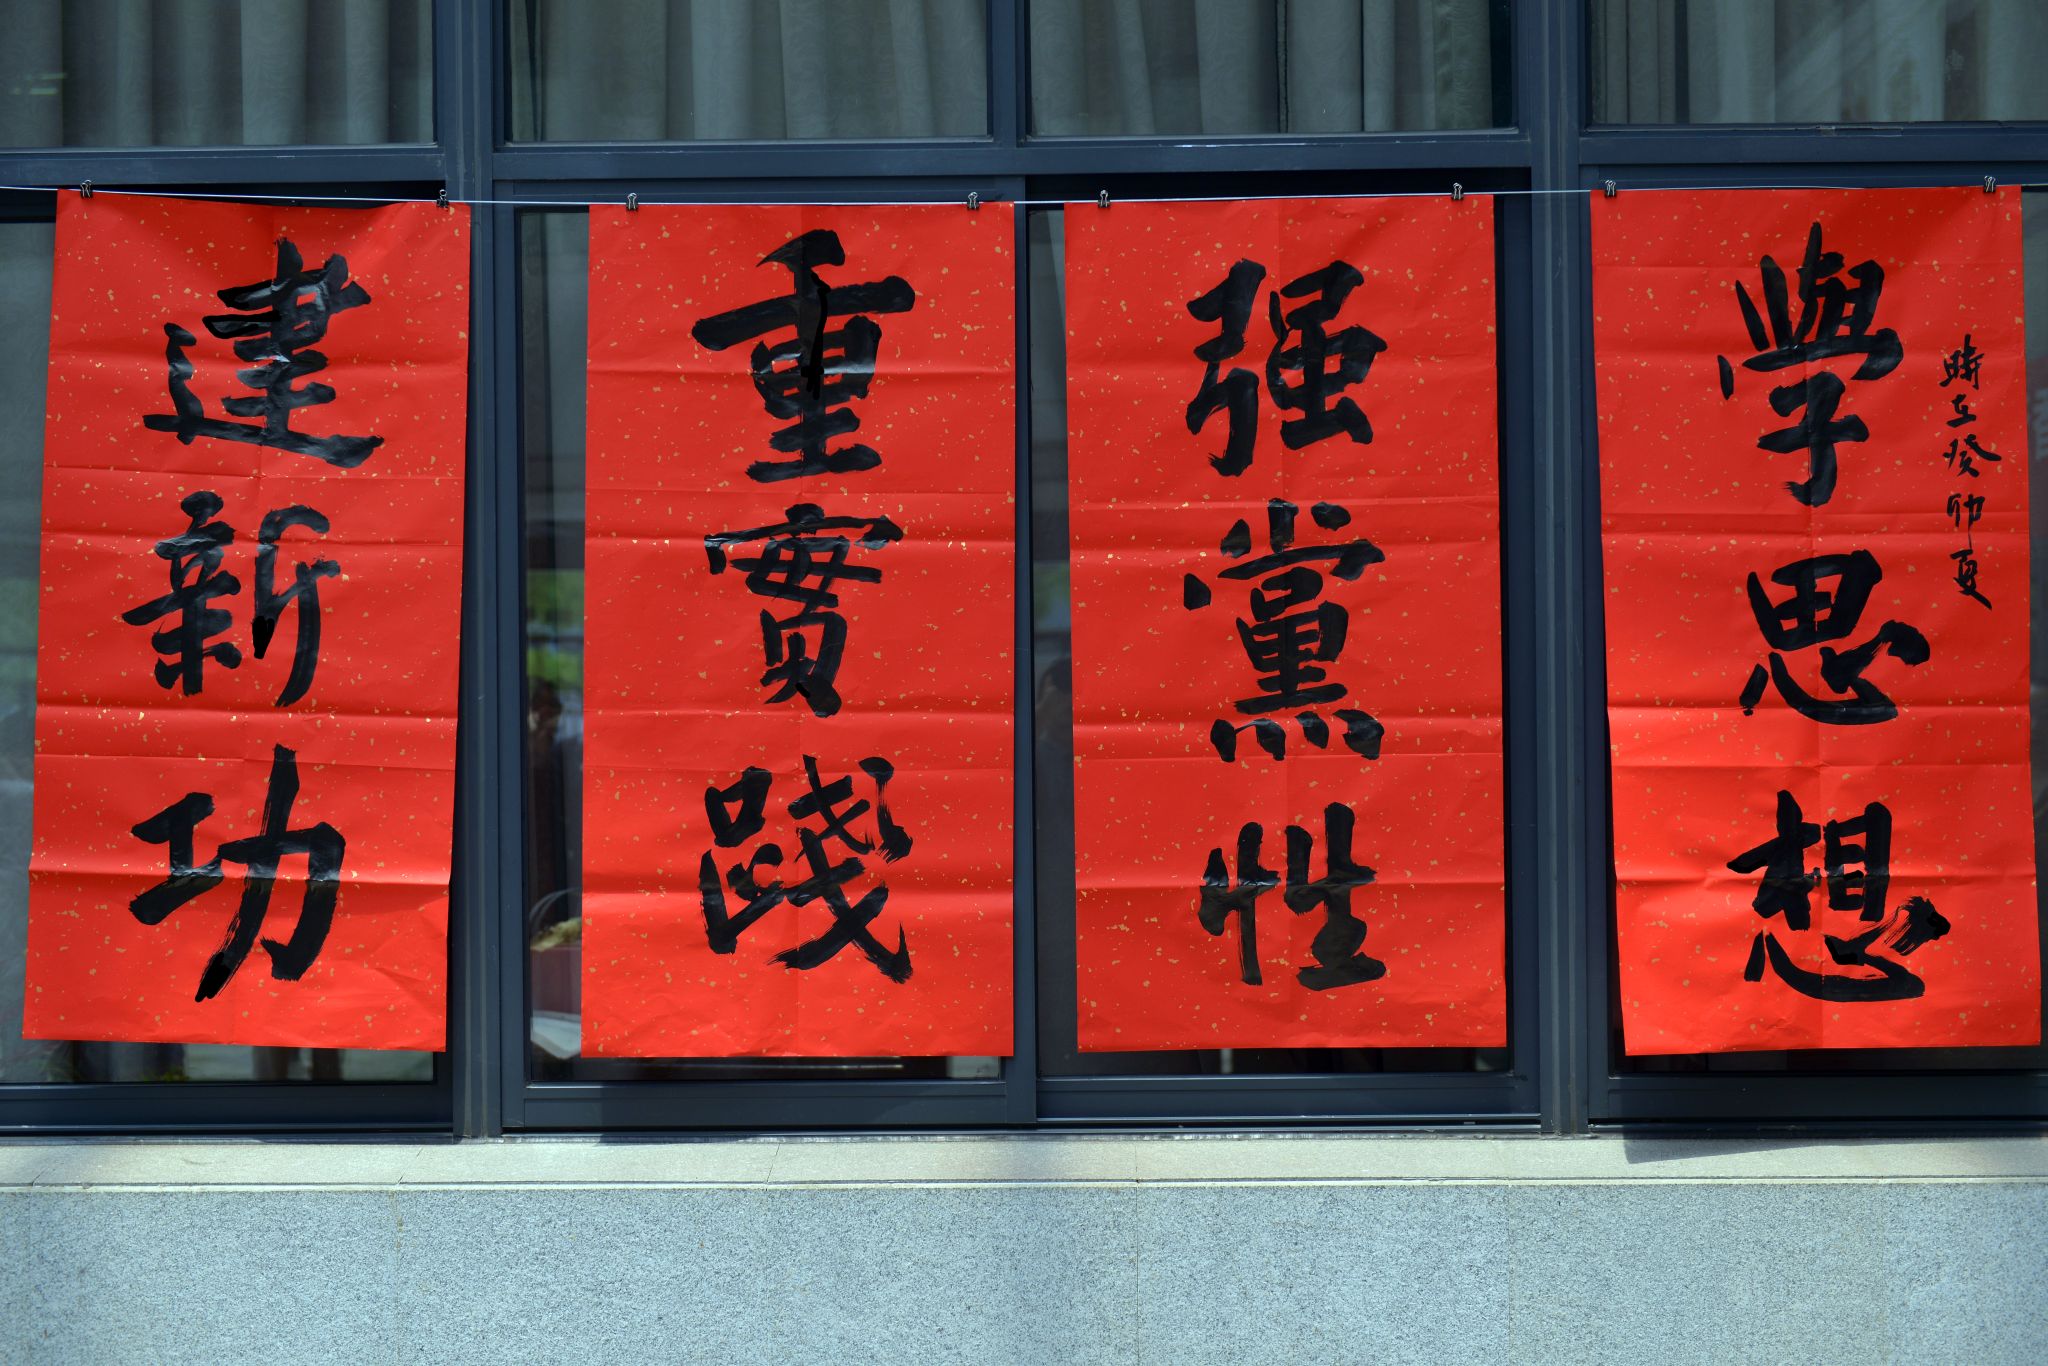 時在癸卯夏
學思想
强黨性
重實踐
建新功